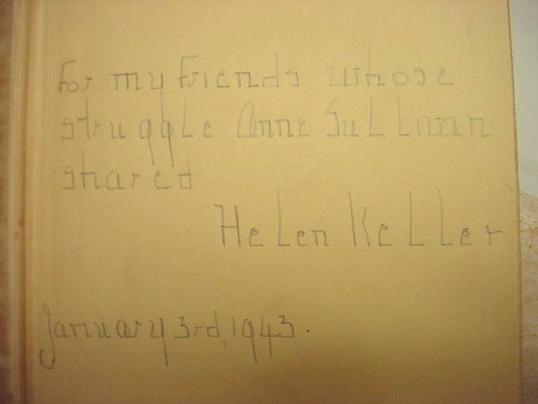 For my friends whose
struggle Anne Sullivan
shared
Helen Keller
January 3rd, 1943.